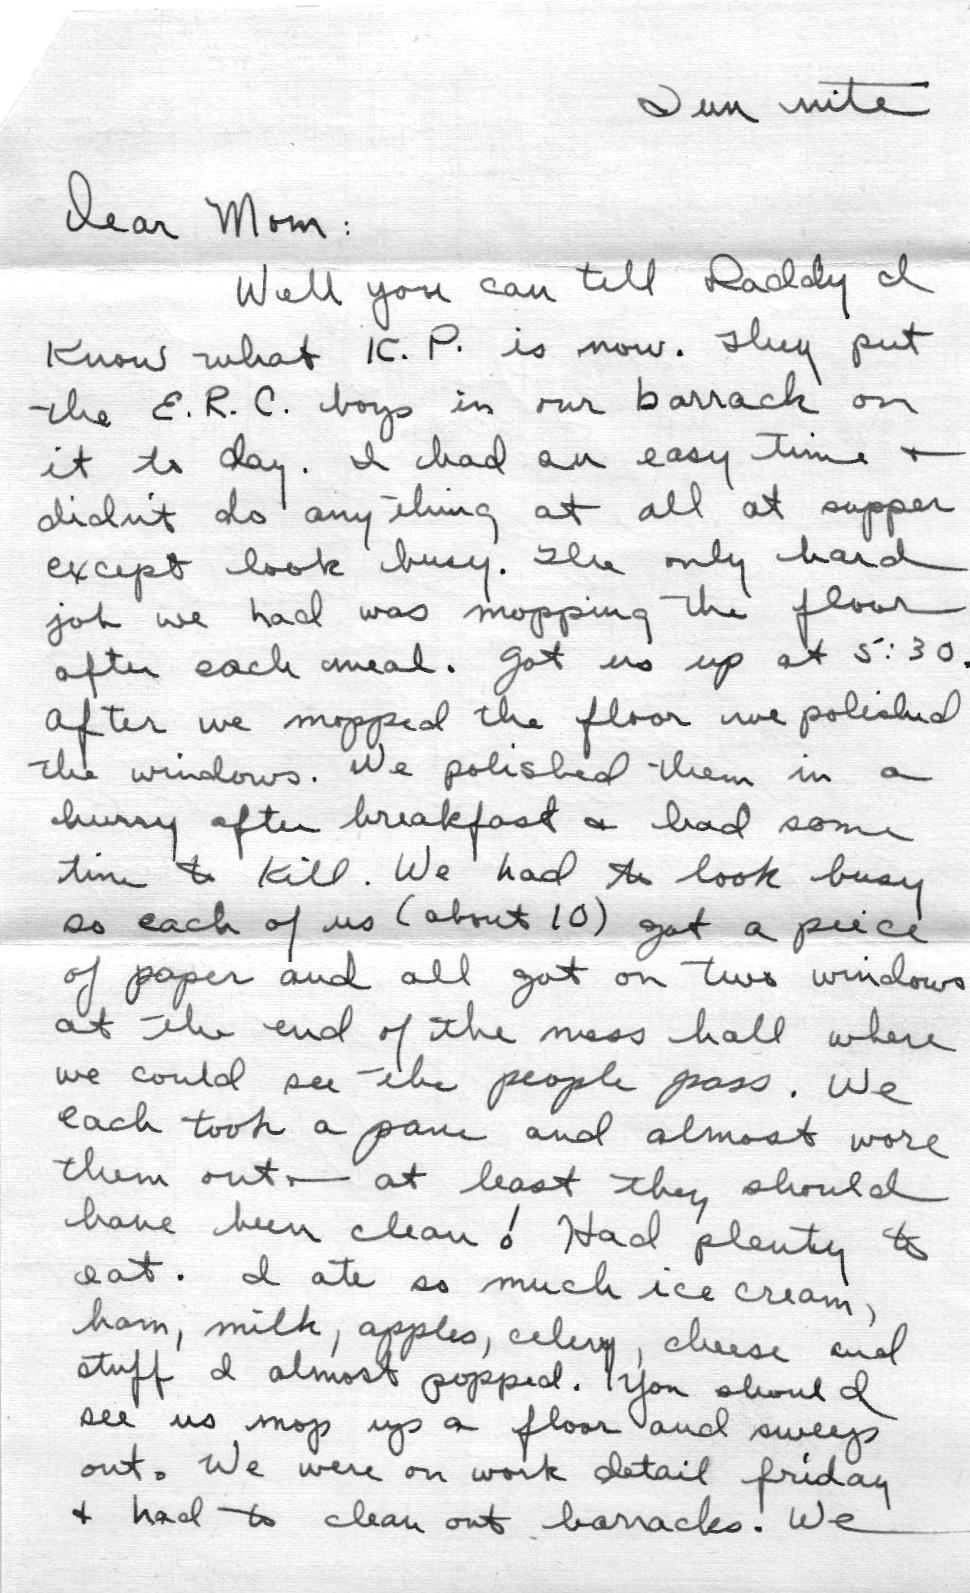 Sun nite
Dear Mom:
Well you can tell Daddy I
know what K.P. is now. They put
the E.R.C. boys in our barrack on
it to day. I had an easy time +
didn't do anything at all at supper
except look busy. The only hard
job we had was mopping the floor
after each meal. Got us up at 5:30.
After we mopped the floor we polished
the windows. We polished them in a
hurry after breakfast & had some
time to kill. We had to look busy
so each of us (about 10) got a peice
of paper and all got on two windows
at the end of the mess hall where
we could see the people pass. We
each took a pane and almost wore
them out — at least they should
have been clean! Had plenty to
eat. I ate so much ice cream,
ham, milk, apples, celery, cheese and
stuff I almost popped. You should
see us mop up a floor and sweep
out. We were on work detail friday
+ had to clean out barracks. We